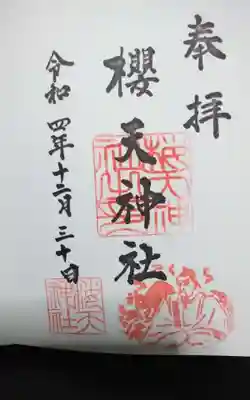 奉拝
櫻天神社
令和四年十二月三十日
櫻天神社